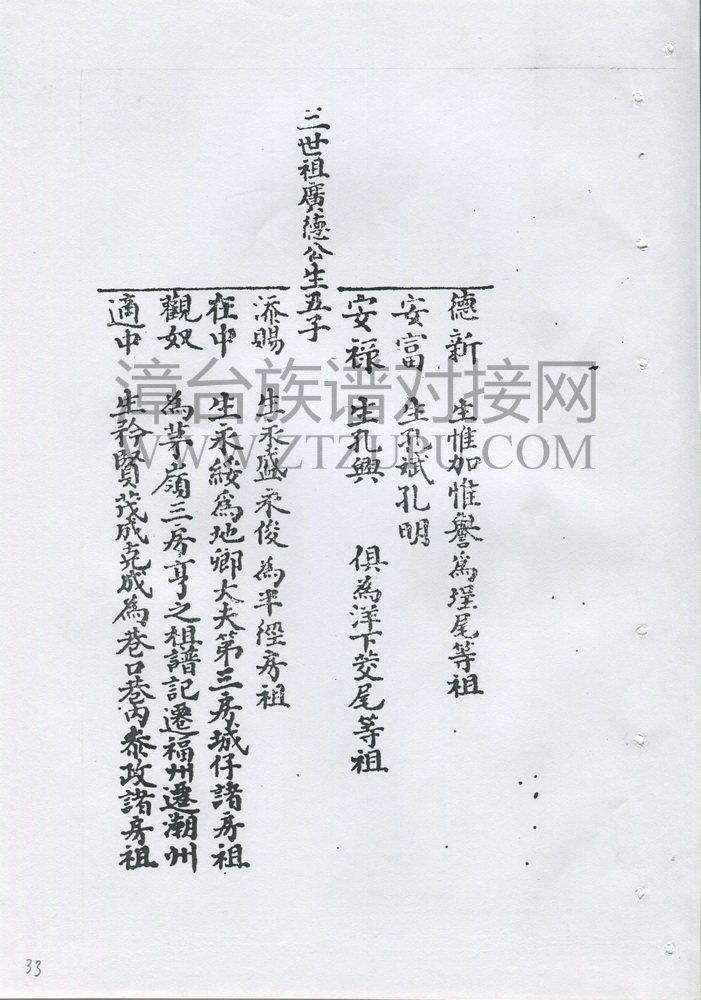 三世祖廣德公生五子
德新 生惟加惟譽為埕尾等祖
安富 生孔斌孔明
安祿 生孔興 俱為洋下茭尾等祖
添賜 生永盛永俊為半徑房祖
在中 生永綏為地卿大夫第三房城仔諸房祖
觀奴 為茅嶺三房亨之祖譜記遷福州遷潮州
適中 生矜賢茂成克成為巷口巷內泰政諸房祖
漳台族谱对接网
WWW.ZTZUPU.COM
33